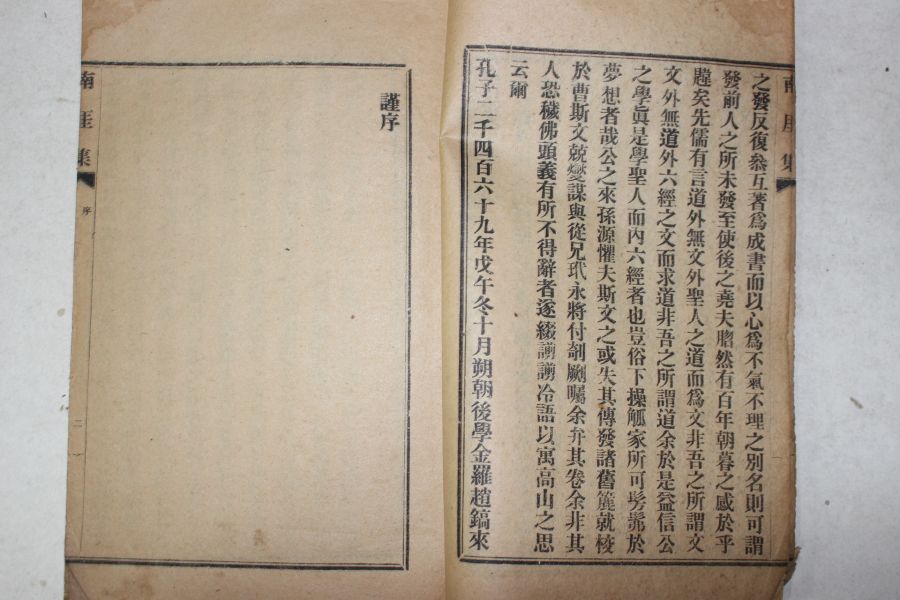 南厓集
之發反復叅互著爲成書而以心爲不氣不理之別名則可謂
發前人之所未發至使後之堯夫脗然有百年朝暮之感於乎
韙矣先儒有言道外無文外聖人之道而爲文非吾之所謂文
文外無道外六經之文而求道非吾之所謂道余於是益信公
之學眞是學聖人而內六經者也豈俗下操觚家所可髣髴於
夢想者哉公之來孫源懼夫斯文之或失其傳發諸舊簏就校
於曹斯文兢燮謀與從兄玳永將付剞劂囑余弁其卷余非其
人恐穢佛頭義有所不得辭者遂綴謭謭冷語以寓高山之思
云爾
孔子二千四百六十九年戊午冬十月朔朝後學金羅趙鎬來
謹序
南厓集
序
二